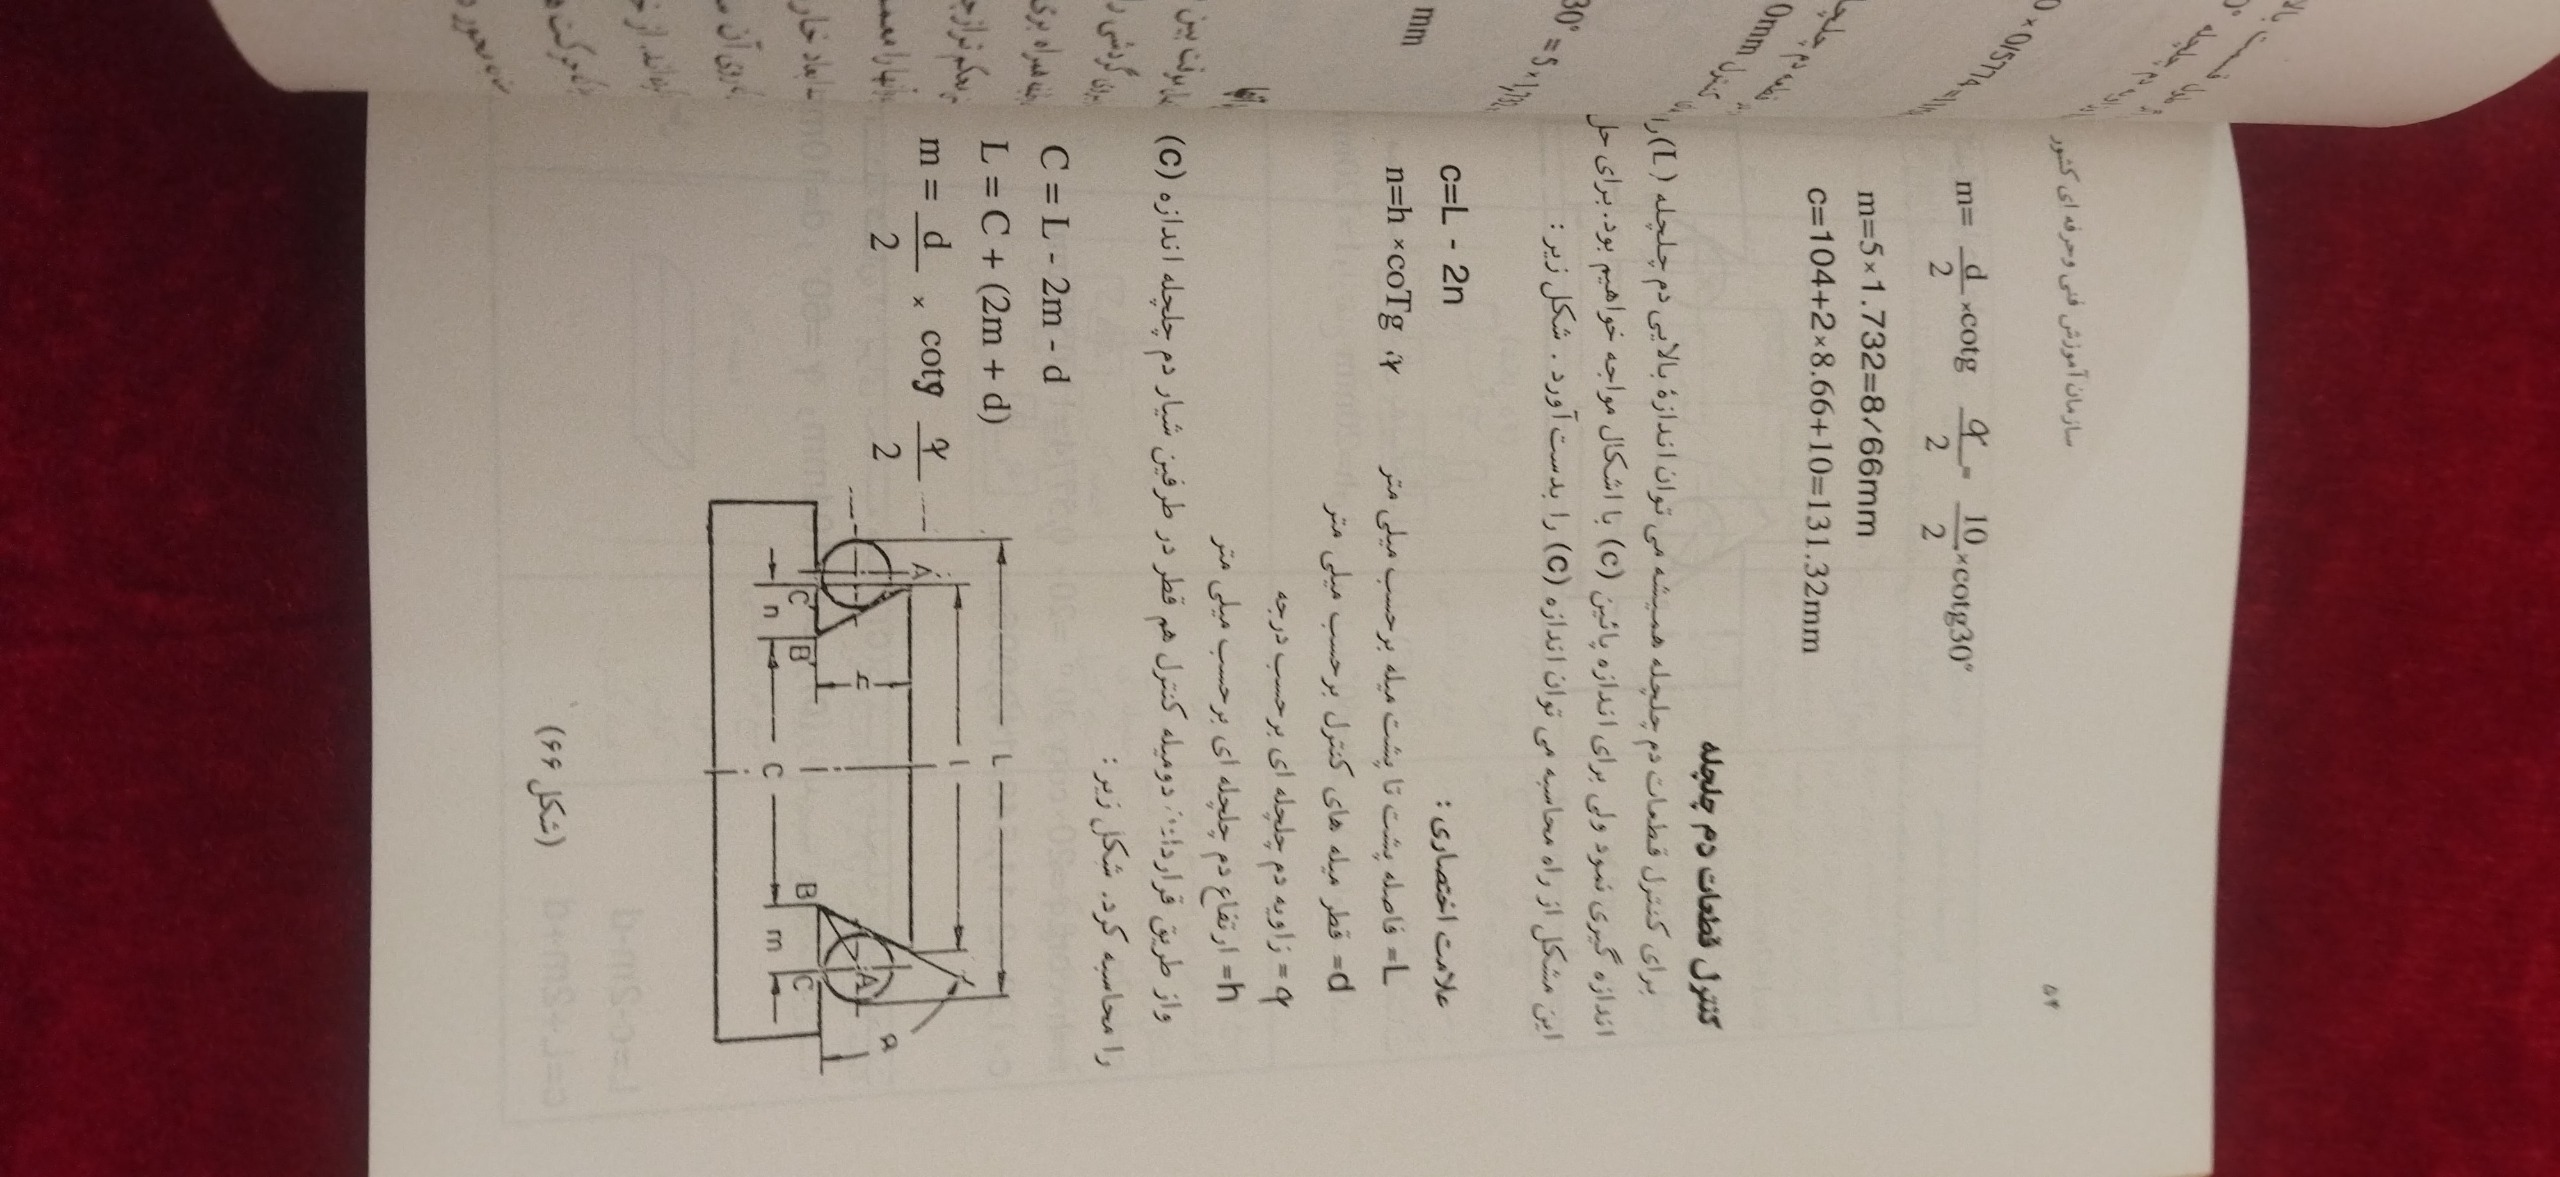 سازمان آموزش فنی و حرفه ای کشور ۵۹
m= d/2 ×cotg α/2 = 10/2 ×cotg30°
m=5×1.732=8/66mm
c=104+2×8.66+10=131.32mm
کنترل قطعات دم چلچله
برای کنترل قطعات دم چلچله همیشه می توان اندازهٔ بالایی دم چلچله (L) را
اندازه گیری نمود ولی برای اندازه پائین (c) با اشکال مواجه خواهیم بود. برای حل
این مشکل از راه محاسبه می توان اندازه (c) را بدست آورد . شکل زیر :
علامت اختصاری : c=L - 2n
L= فاصله پشت تا پشت میله برحسب میلی متر n=h ×coTg α
d= قطر میله های کنترل برحسب میلی متر
α= زاویه دم چلچله ای برحسب درجه
h= ارتفاع دم چلچله ای برحسب میلی متر
واز طریق قرار دومیله کنترل هم قطر در طرفین شیار دم چلچله اندازه (c)
را محاسبه کرد. شکل زیر :
C = L - 2m - d
L = C + (2m + d)
m = d/2 × cotg α/2
L
l
A
A
h
α
C
B
B
C
n
C
m
(شکل ۶۶)